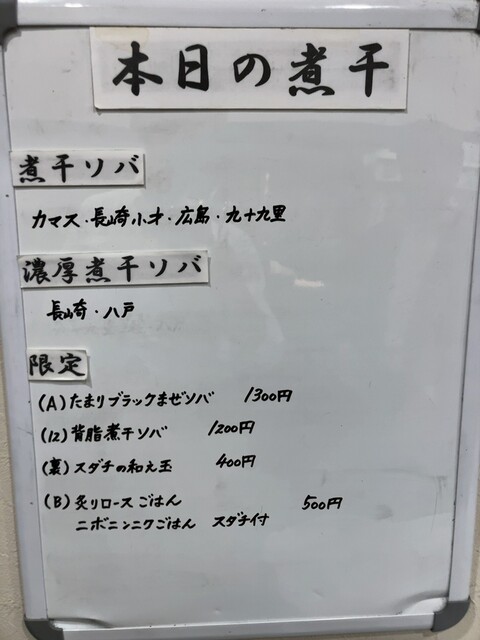 本日の煮干
煮干ソバ
カマス・長崎小才・広島・九十九里
濃厚煮干ソバ
長崎・八戸
限定
(A)たまりブラックまぜソバ 1300円
(12)背脂煮干ソバ 1200円
(裏)スダチの和え玉 400円
(B)炙りロースごはん 500円
ニボニンニクごはん スダチ付